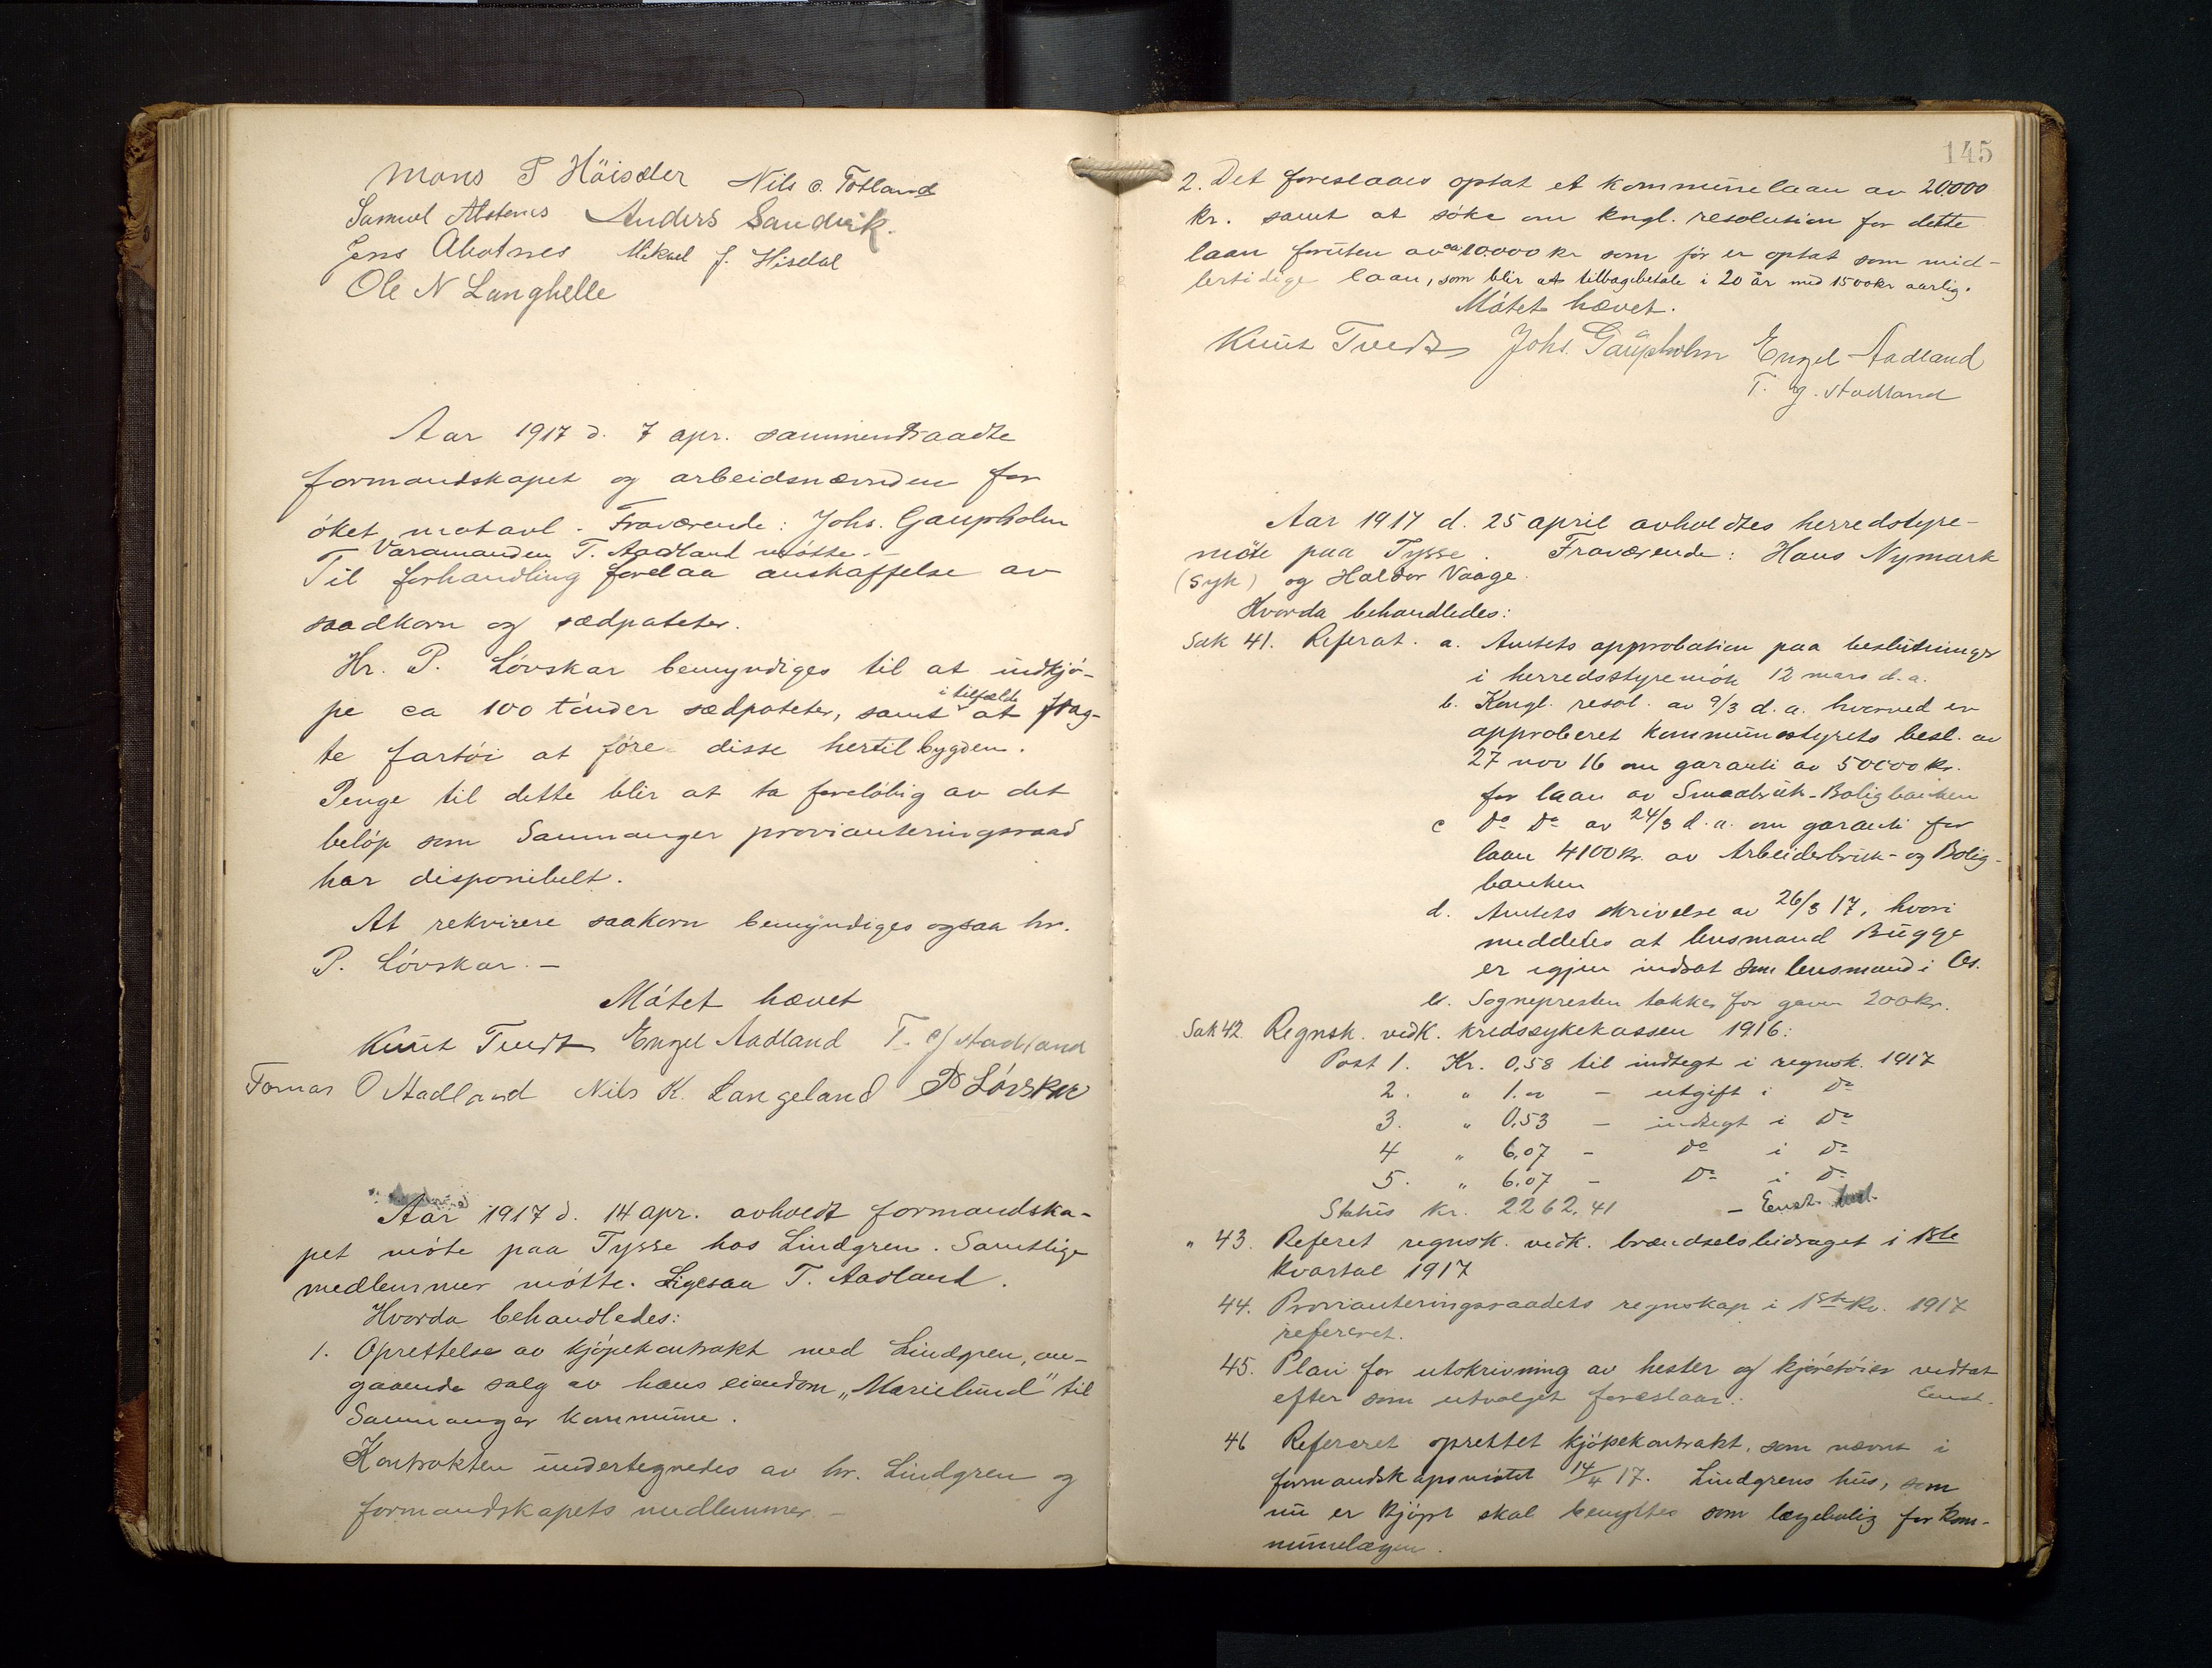 Mons P Höisæter Nils O. Totland
Samuel Alsteens Anders Sandvik.
Jens Ahotnes Mikael J. Hisdal
Ole N Langhelle
Aar 1917 d. 7 apr. sammentraadte
formandskapet og arbeidsnævnden for
øket matavl. Fraværende: Johs. Gaupholm
Varamanden T. Aadland møtte. -
Til forhandling forelaa anskaffelse av
saadkorn og sædpoteter.
Hr. P. Løvskar bemyndiges til at indkjø-
pe ca 100 tønder sædpoteter, samt i tilfælde at frag-
te fartøi at føre disse hertil bygden.
Penge til dette blir at ta foreløbig av det
beløp som Samnanger provianteringsraad
har disponibelt.
At rekvirere saakorn bemyndiges ogsaa hr.
P. Løvskar. -
Møtet hævet
Knut Tvedt Engel Aadland T. G. Aadland
Tomas O Aadland Nils K. Langeland P Løvskar
Aar 1917 d. 14 apr. avholdt formandska-
pet møte paa Tysse hos Lindgren. Samtlige
medlemmer møtte. Ligesaa T. Aadland.
Hvorda behandledes:
1. Oprettelse av kjøpekontrakt med Lindgren, an-
gaaende salg av hans eiendom „Marielund" til
Samnanger kommune.
Kontrakten undertegnedes av hr. Lindgren og
formandskapets medlemmer. -
145
2. Det foreslaaes optat et kommunelaan av 20.000
kr. samt at søke om kngl. resolution for dette
laan foruten av ca 10.000 kr som før er optat som mid-
lertidige laan, som blir at tilbagebetale i 20 år med 1500kr aarlig.
Møtet hævet.
Knut Tvedt Johs. Gaupholm Engel Aadland
T. G. Aadland
Aar 1917 d. 25 april avholdtes herredstyre-
møte paa Tysse. Fraværende: Hans Nymark
(syk) og Haldor Vaage.
Hvorda behandledes:
Sak 41. Referat. a. Amtets approbation paa beslutninger
i herredsstyremøte 12 mars d.a.
b. Kongl. resol. av 9/3 d.a. hvorved er
approberet kommunestyrets besl. av
27 nov 16 om garanti av 50000 kr.
for laan av Smaabruk-Boligbanken
c do do av 24/3 d.a. om garanti for
laan 4100 kr. av Arbeiderbruk- og Bolig-
banken
d. Amtets skrivelse av 26/3 17, hvori
meddeles at lensmand Bugge
er igjen indsat som lensmand i Os.
e. Sognepresten takker for gaven 200kr.
Sak 42 Regnsk. vedk. kredssykekassen 1916:
Post 1. Kr. 0,58 til indtegt i regnsk. 1917
2. " 1.00 - utgift i do
3. " 0,53 - indtegt i do
4 " 6,07 - do i do
5. " 6.07 - do i do
Status Kr. 2262,41 - Enst.
" 43. Referet regnsk. vedk. brændselsbidraget i 1ste
kvartal 1917
44. Provianteringsraadets regnskap i 1ste kv. 1917
referert.
45. Plan for utskrivning av hester og kjøretøier vedtat
efter som utvalget foreslaar. Enst.
46 Refereret oprettet kjøpekontrakt, som nævnt i
formandskapsmøtet 14/4 17. Lindgrens hus, som
nu er kjøpt skal benyttes som lægebolig for kom-
munelægen.